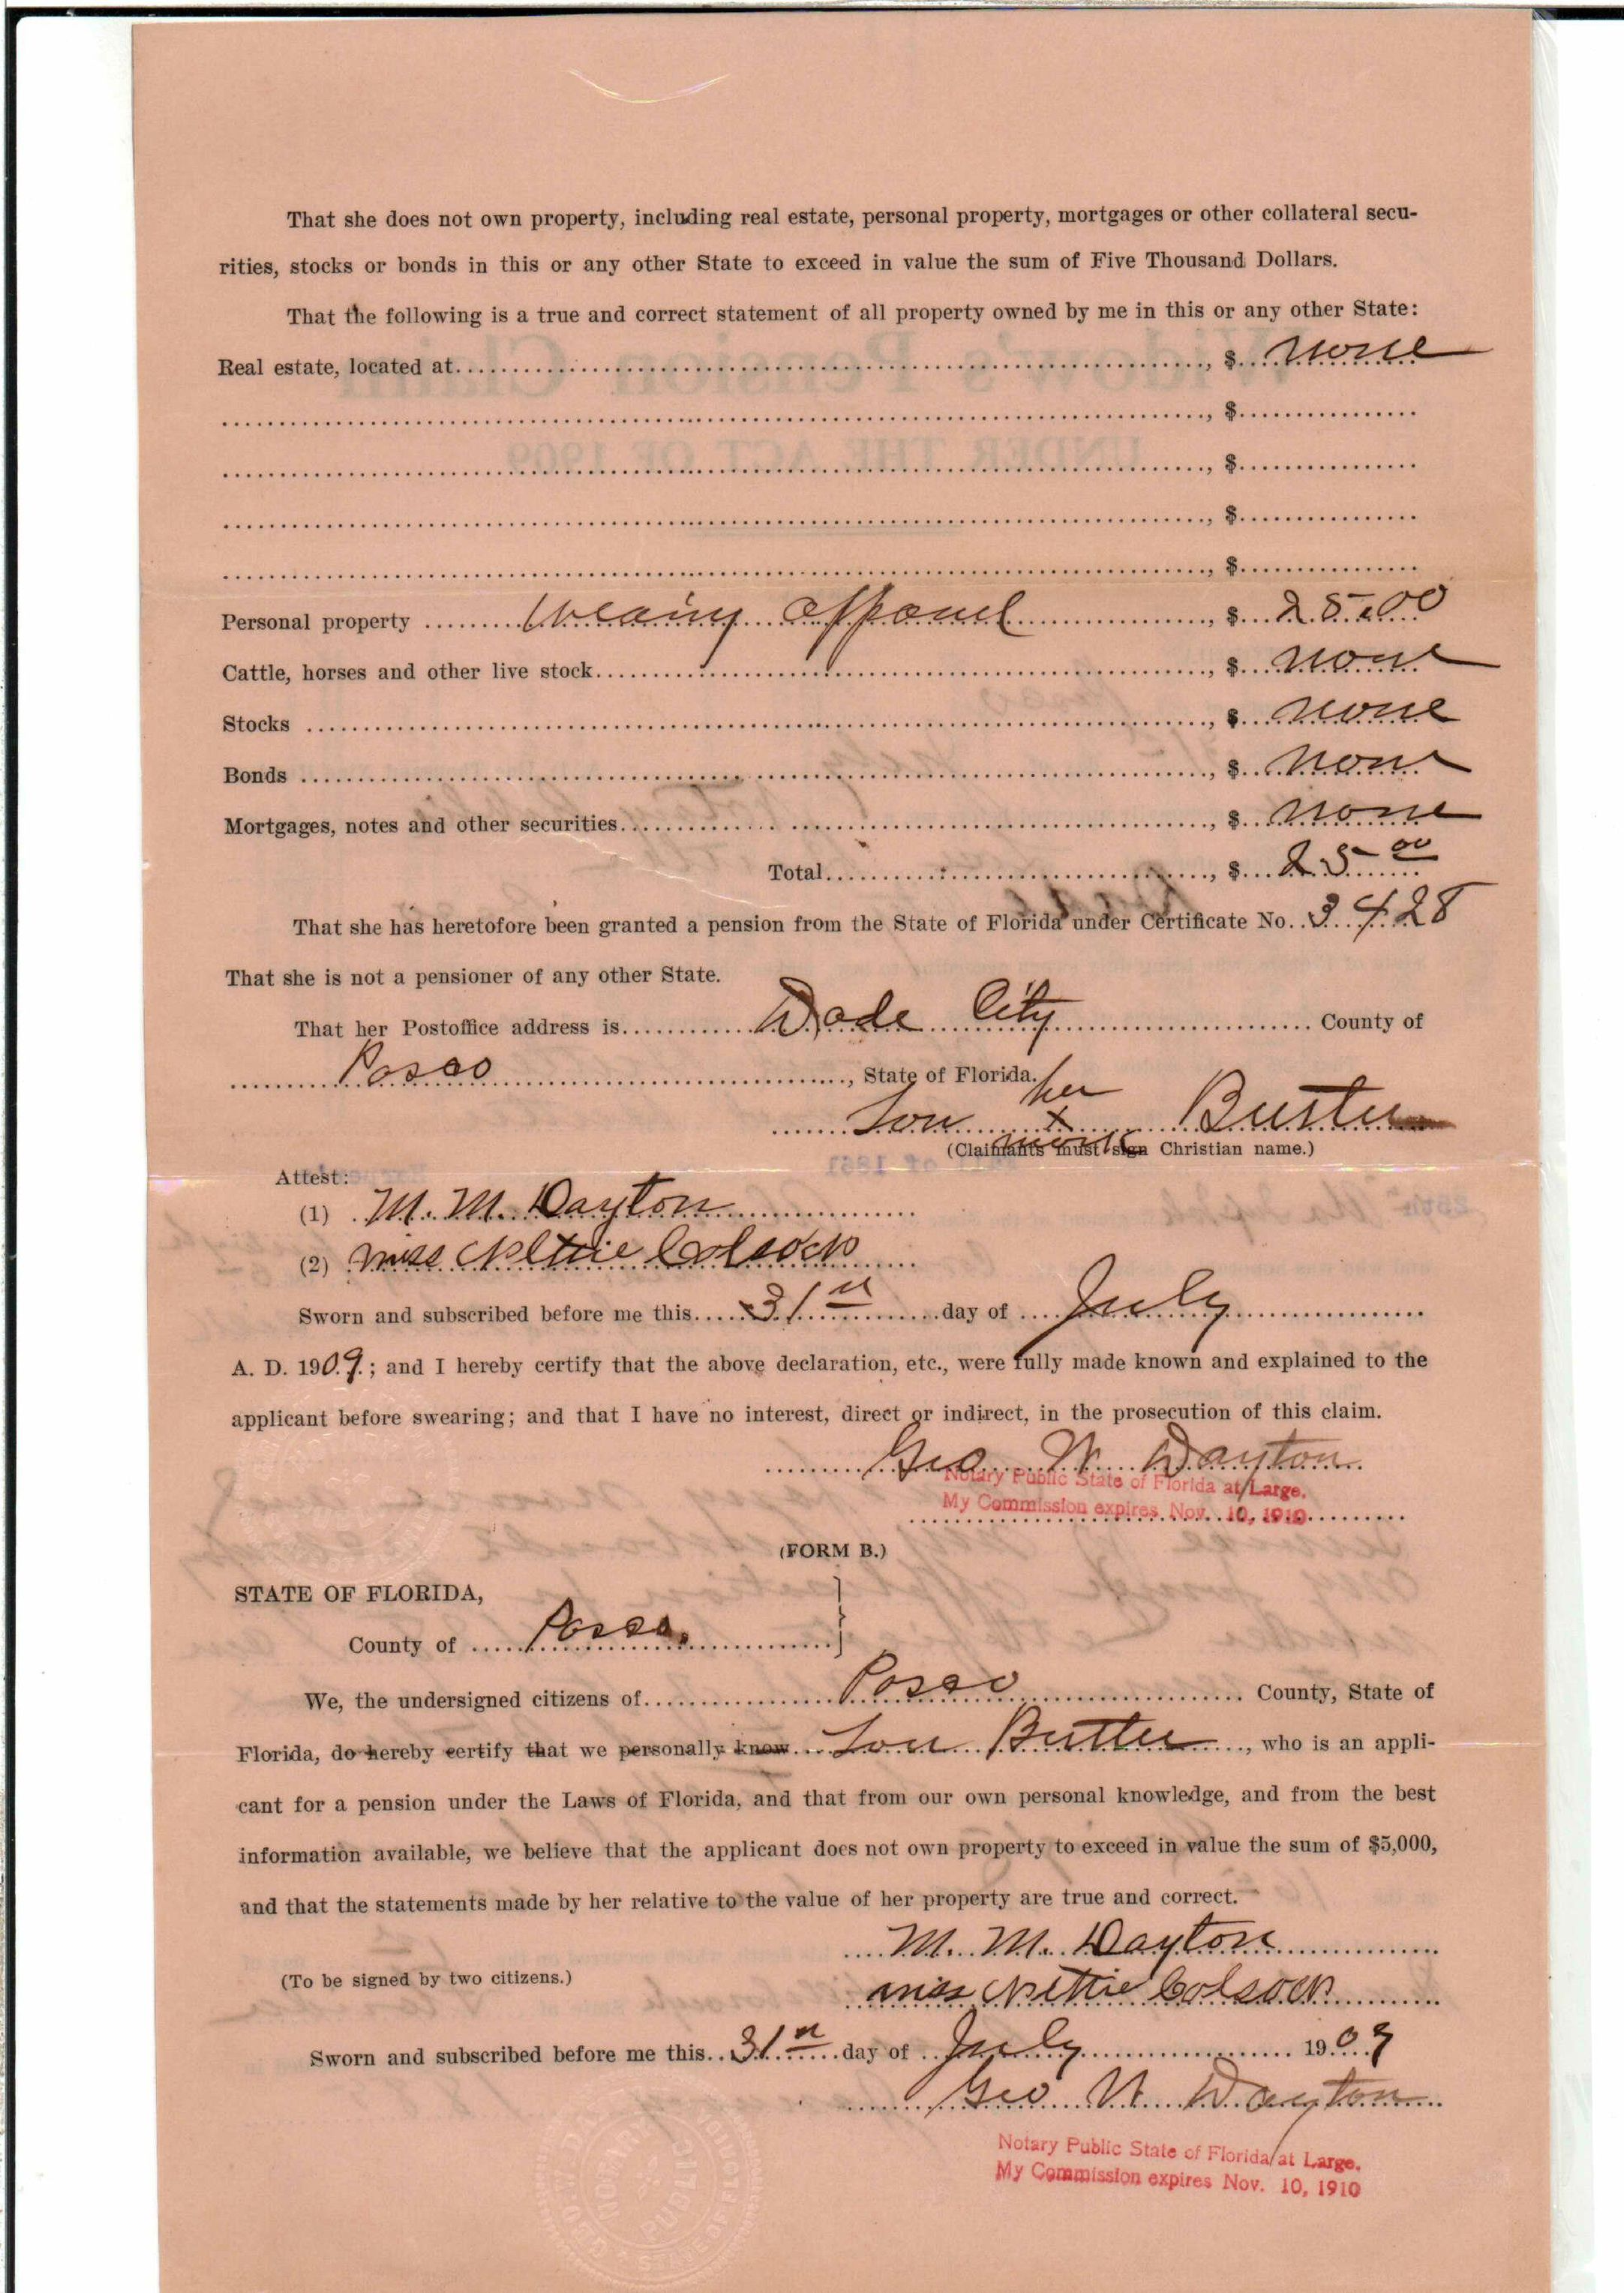 That she does not own property, including real estate, personal property, mortgages or other collateral secu-
rities, stocks or bonds in this or any other State to exceed in value the sum of Five Thousand Dollars.
That the following is a true and correct statement of all property owned by me in this or any other State:
Real estate, located at..............................., $ none
..............................., $
..............................., $
..............................., $
..............................., $
Personal property ........ Wearing apparel ........, $ 25.00
Cattle, horses and other live stock..............................., $ none
Stocks ..............................., $ none
Bonds ..............................., $ none
Mortgages, notes and other securities..............................., $ none
Total..............................., $ 25 00
That she has heretofore been granted a pension from the State of Florida under Certificate No. 3428
That she is not a pensioner of any other State.
That her Postoffice address is............ Dade City ............ County of
............ Pasco ............, State of Florida.
her
Lou x Butler
mark
(Claimants must sign Christian name.)
Attest:
(1) M. M. Dayton
(2) Miss Nettie Colsock
Sworn and subscribed before me this..... 31st .....day of .... July
A. D. 1909.; and I hereby certify that the above declaration, etc., were fully made known and explained to the
applicant before swearing; and that I have no interest, direct or indirect, in the prosecution of this claim.
Geo W Dayton
Notary Public State of Florida at Large.
My Commission expires Nov. 10, 1910
(FORM B.)
STATE OF FLORIDA,
County of ..... Pasco.
We, the undersigned citizens of............ Pasco ............ County, State of
Florida, do hereby certify that we personally know.... Lou Butler ...., who is an appli-
cant for a pension under the Laws of Florida, and that from our own personal knowledge, and from the best
information available, we believe that the applicant does not own property to exceed in value the sum of $5,000,
and that the statements made by her relative to the value of her property are true and correct.
M. M. Dayton
(To be signed by two citizens.)
Miss Nettie Colsock
Sworn and subscribed before me this.. 31st ..day of .. July ............ 1909
Geo W Dayton
Notary Public State of Florida at Large.
My Commission expires Nov. 10, 1910